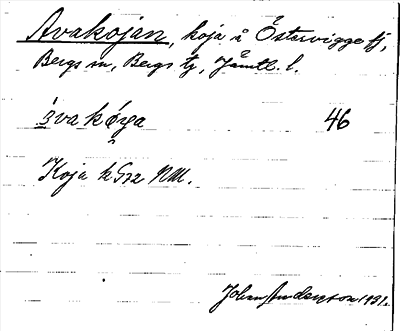 Avakojan, koja å Östervigge fj,
Bergs sn, Bergs tg, Jämtl. l.
åvakǫ́ya 46
Koja k Gsz NM.
Johan Anderzon 1931.